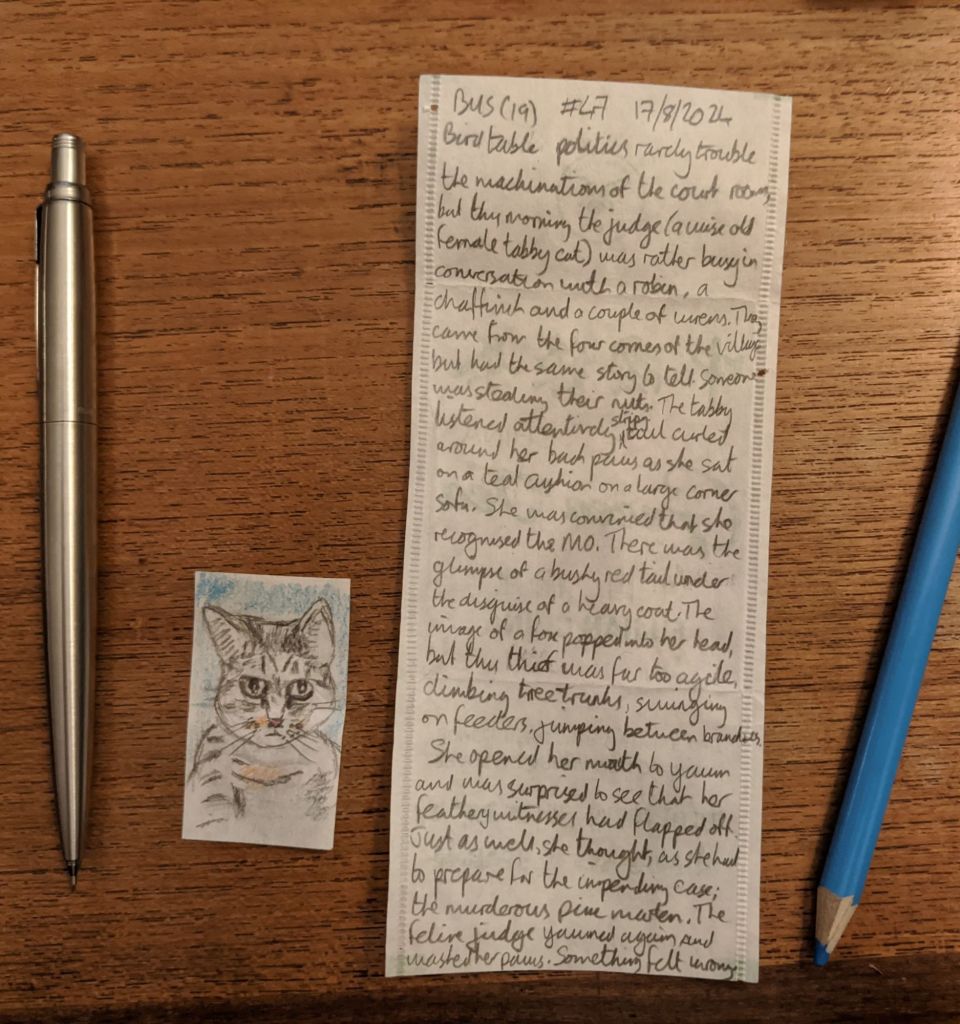 BUS (19) #47 17/8/2024
Bird table politics rarely trouble
the machinations of the court room,
but thy morning the judge (a wise old
female tabby cat) was rather busy in
conversation with a robin, a
chaffinch and a couple of wrens. They
came from the four corners of the village
but had the same story to tell. Someone
was stealing their nuts. The tabby
listened attentively, stripy tail curled
around her back paws as she sat
on a teal cushion on a large corner
sofa. She was convinced that she
recognised the MO. There was the
glimpse of a bushy red tail under
the disguise of a heavy coat. The
image of a fox popped into her head,
but this thief was far too agile,
climbing tree trunks, swinging
on feeders, jumping between branches.
She opened her mouth to yawn
and was surprised to see that her
feathery witnesses had flapped off.
Just as well, she thought, as she had
to prepare for the impending case;
the murderous pine marten. The
feline judge yawned again and
washed her paws. Something felt wrong.